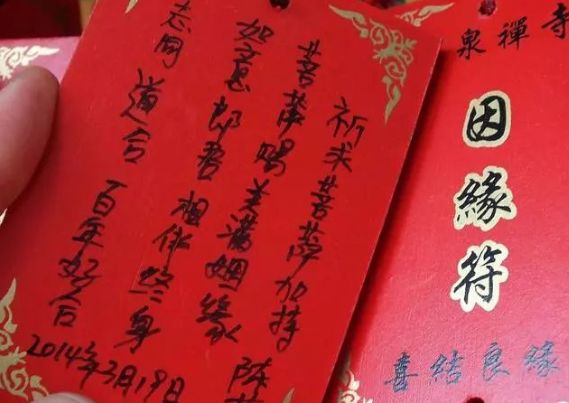 祈求菩萨加持
菩萨赐美满姻缘
如意郎君 相依终身
志同道合 百年好合
2014年3月19日
陈
泉禪寺
因緣符
喜結良緣